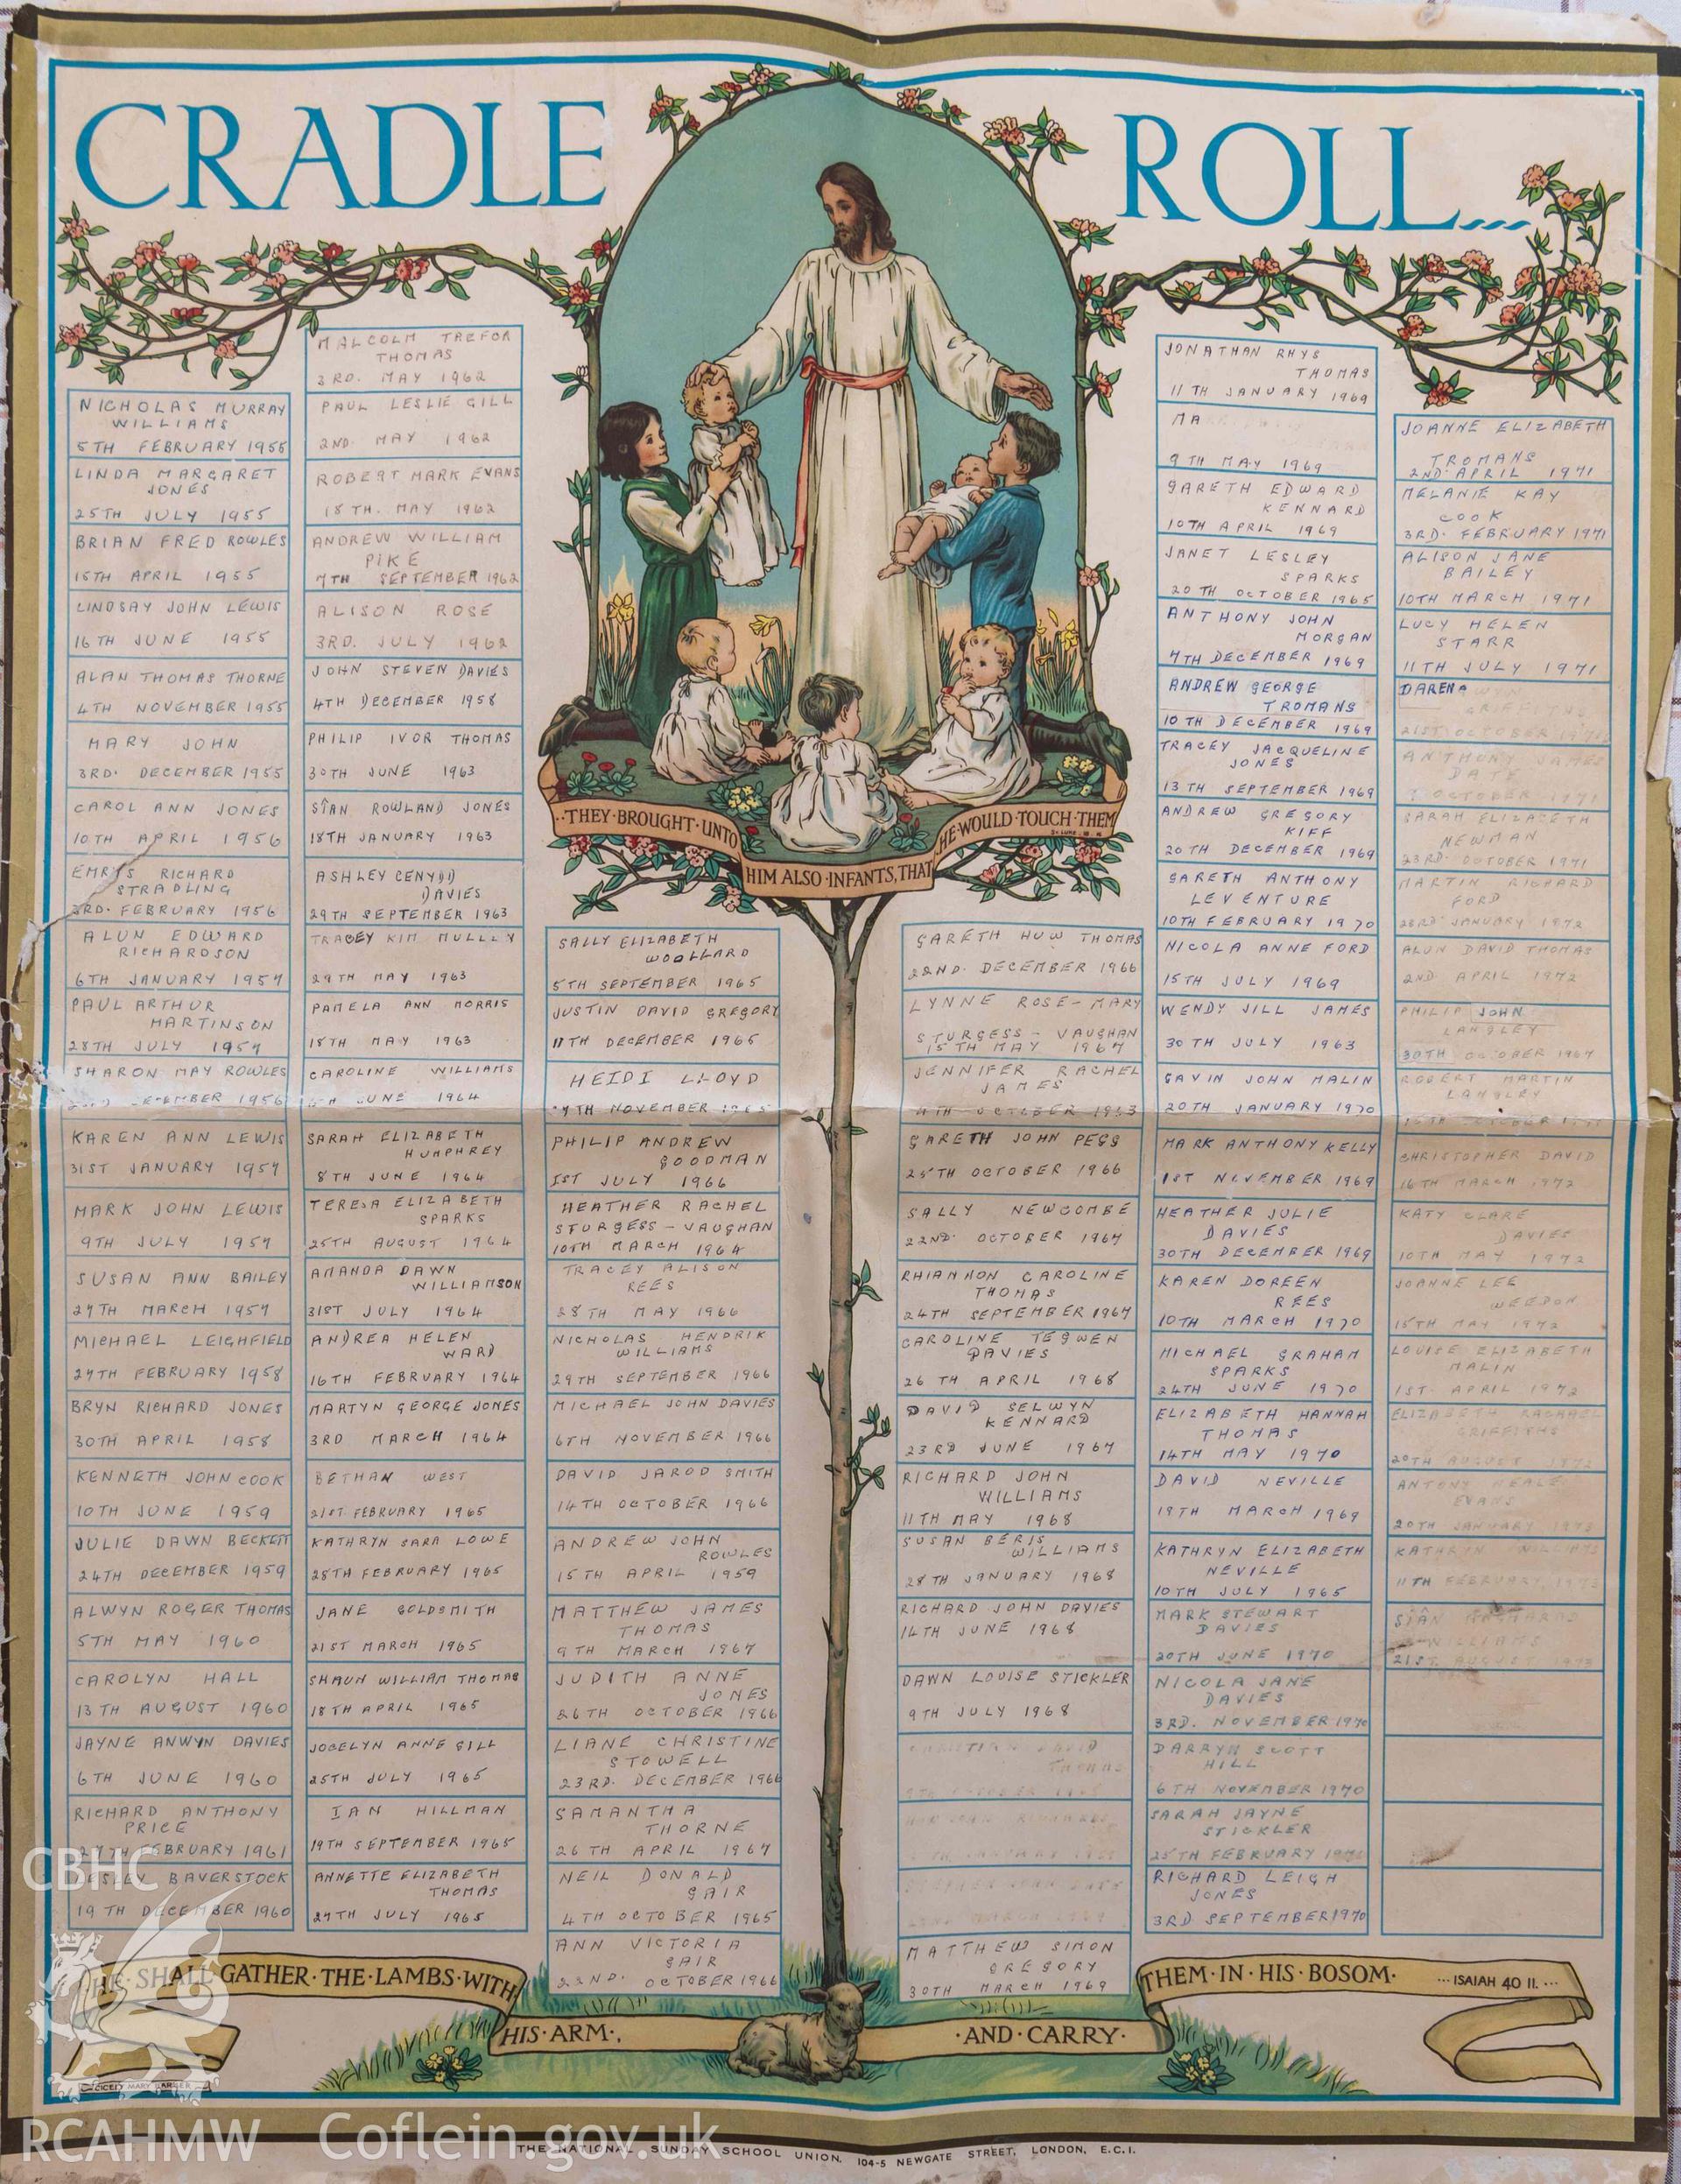 CRADLE ROLL...
NICHOLAS MURRAY
WILLIAMS
5TH FEBRUARY 1955
LINDA MARGARET
JONES
25TH JULY 1955
BRIAN FRED ROWLES
15TH APRIL 1955
LINDSAY JOHN LEWIS
16TH JUNE 1955
ALAN THOMAS THORNE
4TH NOVEMBER 1955
MARY JOHN
3RD. DECEMBER 1955
CAROL ANN JONES
10TH APRIL 1956
EMRYS RICHARD
STRADLING
3RD. FEBRUARY 1956
ALUN EDWARD
RICHARDSON
6TH JANUARY 1957
PAUL ARTHUR
MARTINSON
28TH JULY 1957
SHARON MAY ROWLES
DECEMBER 1956
KAREN ANN LEWIS
31ST JANUARY 1957
MARK JOHN LEWIS
9TH JULY 1957
SUSAN ANN BAILEY
27TH MARCH 1957
MICHAEL LEIGHFIELD
27TH FEBRUARY 1958
BRYN RICHARD JONES
30TH APRIL 1958
KENNETH JOHN COOK
10TH JUNE 1959
JULIE DAWN BECKETT
24TH DECEMBER 1959
ALWYN ROGER THOMAS
5TH MAY 1960
CAROLYN HALL
13TH AUGUST 1960
JAYNE ANWYN DAVIES
6TH JUNE 1960
RICHARD ANTHONY
PRICE
27TH FEBRUARY 1961
LESLEY BAVERSTOCK
19TH DECEMBER 1960
MALCOLM TREFOR
THOMAS
3RD. MAY 1962
PAUL LESLIE GILL
2ND. MAY 1962
ROBERT MARK EVANS
18TH. MAY 1962
ANDREW WILLIAM
PIKE
7TH SEPTEMBER 1962
ALISON ROSE
3RD. JULY 1962
JOHN STEVEN DAVIES
4TH DECEMBER 1958
PHILIP IVOR THOMAS
30TH JUNE 1963
SIÂN ROWLAND JONES
18TH JANUARY 1963
ASHLEY CENYDD
DAVIES
29TH SEPTEMBER 1963
TRACEY KIM MULLEY
29TH MAY 1963
PAMELA ANN MORRIS
15TH MAY 1963
CAROLINE WILLIAMS
JUNE 1964
SARAH ELIZABETH
HUMPHREY
8TH JUNE 1964
TERESA ELIZABETH
SPARKS
25TH AUGUST 1964
AMANDA DAWN
WILLIAMSON
31ST JULY 1964
ANDREA HELEN
WARD
16TH FEBRUARY 1964
MARTYN GEORGE JONES
3RD MARCH 1964
BETHAN WEST
21ST FEBRUARY 1965
KATHRYN SARA LOWE
28TH FEBRUARY 1965
JANE GOLDSMITH
21ST MARCH 1965
SHAUN WILLIAM THOMAS
18TH APRIL 1965
JOCELYN ANNE GILL
25TH JULY 1965
IAN HILLMAN
19TH SEPTEMBER 1965
ANNETTE ELIZABETH
THOMAS
27TH JULY 1965
..THEY·BROUGHT·UNTO
HIM ALSO·INFANTS,THAT
HE·WOULD·TOUCH·THEM
St LUKE
SALLY ELIZABETH
WOOLLARD
5TH SEPTEMBER 1965
JUSTIN DAVID GREGORY
11TH DECEMBER 1965
HEIDI LLOYD
7TH NOVEMBER 1965
PHILIP ANDREW
GOODMAN
1ST JULY 1966
HEATHER RACHEL
STURGESS-VAUGHAN
10TH MARCH 1964
TRACEY ALISON
REES
28TH MAY 1966
NICHOLAS HENDRIK
WILLIAMS
29TH SEPTEMBER 1966
MICHAEL JOHN DAVIES
6TH NOVEMBER 1966
DAVID JAROD SMITH
14TH OCTOBER 1966
ANDREW JOHN
ROWLES
15TH APRIL 1959
MATTHEW JAMES
THOMAS
9TH MARCH 1967
JUDITH ANNE
JONES
26TH OCTOBER 1966
LIANE CHRISTINE
STOWELL
23RD. DECEMBER 1966
SAMANTHA
THORNE
26TH APRIL 1967
NEIL DONALD
GAIR
4TH OCTOBER 1965
ANN VICTORIA
GAIR
22ND. OCTOBER 1966
GARETH HUW THOMAS
22ND. DECEMBER 1966
LYNNE ROSE-MARY
STURGESS-VAUGHAN
15TH MAY 1967
JENNIFER RACHEL
JAMES
4TH OCTOBER 1963
GARETH JOHN PEGG
25TH OCTOBER 1966
SALLY NEWCOMBE
22ND. OCTOBER 1967
RHIANNON CAROLINE
THOMAS
24TH SEPTEMBER 1967
CAROLINE TEGWEN
DAVIES
26TH APRIL 1968
DAVID SELWYN
KENNARD
23RD JUNE 1967
RICHARD JOHN
WILLIAMS
11TH MAY 1968
SUSAN BERIS
WILLIAMS
28TH JANUARY 1968
RICHARD JOHN DAVIES
14TH JUNE 1968
DAWN LOUISE STICKLER
9TH JULY 1968
CHRISTIAN DAVID
THOMAS
MATTHEW SIMON
GREGORY
30TH MARCH 1969
JONATHAN RHYS
THOMAS
11TH JANUARY 1969
MA
9TH MAY 1969
GARETH EDWARD
KENNARD
10TH APRIL 1969
JANET LESLEY
SPARKS
20TH OCTOBER 1965
ANTHONY JOHN
MORGAN
7TH DECEMBER 1969
ANDREW GEORGE
TROMANS
10TH DECEMBER 1969
TRACEY JACQUELINE
JONES
13TH SEPTEMBER 1969
ANDREW GREGORY
KIFF
20TH DECEMBER 1969
GARETH ANTHONY
LEVENTURE
10TH FEBRUARY 1970
NICOLA ANNE FORD
15TH JULY 1969
WENDY JILL JAMES
30TH JULY 1963
GAVIN JOHN MALIN
20TH JANUARY 1970
MARK ANTHONY KELLY
1ST NOVEMBER 1969
HEATHER JULIE
DAVIES
30TH DECEMBER 1969
KAREN DOREEN
REES
10TH MARCH 1970
MICHAEL GRAHAM
SPARKS
24TH JUNE 1970
ELIZABETH HANNAH
THOMAS
14TH MAY 1970
DAVID NEVILLE
19TH MARCH 1969
KATHRYN ELIZABETH
NEVILLE
10TH JULY 1965
MARK STEWART
DAVIES
20TH JUNE 1970
NICOLA JANE
DAVIES
3RD. NOVEMBER 1970
DARRYN SCOTT
HILL
6TH NOVEMBER 1970
SARAH JAYNE
STICKLER
25TH FEBRUARY
RICHARD LEIGH
JONES
3RD SEPTEMBER 1970
JOANNE ELIZABETH
TROMANS
2ND. APRIL 1971
MELANIE KAY
COOK
3RD. FEBRUARY 1971
ALISON JANE
BAILEY
10TH MARCH 1971
LUCY HELEN
STARR
11TH JULY 1971
DAREN
GRIFFITHS
21ST OCTOBER 1971
ANTHONY JAMES
DATE
OCTOBER 1971
SARAH ELIZABETH
NEWMAN
23RD. OCTOBER 1971
MARTIN RICHARD
FORD
23RD JANUARY 1972
ALUN DAVID THOMAS
2ND. APRIL 1972
PHILIP JOHN
LANGLEY
30TH OCTOBER 1967
ROBERT MARTIN
LANGLEY
OCTOBER
CHRISTOPHER DAVID
16TH MARCH 1972
KATY CLARE
DAVIES
10TH MAY 1972
JOANNE LEE
WEEDON
15TH MAY 1972
LOUISE ELIZABETH
MALIN
1ST. APRIL 1972
ELIZABETH RACHAEL
GRIFFITHS
20TH AUGUST 1972
ANTONY NEALE
EVANS
20TH JANUARY 1973
KATHRYN WILLIAMS
11TH FEBRUARY, 1973
SIÂN
WILLIAMS
21ST. AUGUST 1973
HE·SHALL·GATHER·THE·LAMBS·WITH
HIS·ARM·,
·AND·CARRY·
THEM·IN·HIS·BOSOM·
...ISAIAH 40 11. ...
CICELY MARY BARKER
THE NATIONAL SUNDAY SCHOOL UNION. 104-5 NEWGATE STREET, LONDON, E.C.1.
CBHC
RCAHMW
Coflein.gov.uk